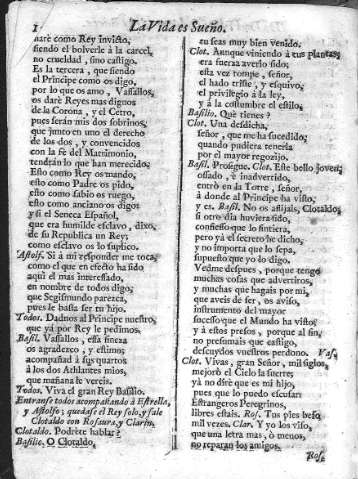 1 La Vida es Sueño.
darè como Rey Invicto,
siendo el bolverle à la carcel,
no crueldad, sino castigo.
Es la tercera, que siendo
el Principe como os digo,
por lo que os amo, Vassallos,
os darè Reyes mas dignos
de la Corona, y el Cetro,
pues serán mis dos sobrinos,
que junto en uno el derecho
de los dos, y convencidos
con la fe del Matrimonio,
tendràn lo que han merecido.
Esto como Rey os mando,
esto como Padre os pido,
esto como sabio os ruego,
esto como anciano os digo
y si el Seneca Español,
que era humilde esclavo, dixo,
de su Republica un Rey,
como esclavo os lo suplico.
Astolf. Si à mi responder me toca,
como el que en efecto ha sido
aqui el mas interessado,
en nombre de todos digo,
que Segismundo parezca,
pues le basta ser tu hijo.
Todos. Dadnos al Principe nuestro,
que yà por Rey le pedimos.
Basil. Vassallos, essa fineza
os agradezco, y estimo
acompañad à sus quartos
à los dos Athlantes mios,
que mañana le vereis.
Todos. Viva el gran Rey Basilio.
Entranse todos acompañando à Estrella,
y Astolfo; quedase el Rey solo, y sale
Clotaldo con Rosaura, y Clarin.
Clotaldo. Podrète hablar?
Basilio. O Clotaldo,
tu seas muy bien venido.
Clot. Aunque viniendo à tus plantas,
era fuerza averlo sido;
esta vez rompe, señor,
el hado triste, y esquivo,
el privilegio à la ley,
y à la costumbre el estilo.
Basilio. Què tienes?
Clot. Una desdicha,
señor, que me ha sucedido,
quando pudiera tenerla
por el mayor regozijo.
Basil. Prosigue. Clot. Este bello joven,
ossado, è inadvertido,
entrò en la Torre, señor,
à donde al Principe ha visto,
y es. Basil. No os aflijais, Clotaldo,
si otro dia huviera sido,
confiesso que lo sintiera,
pero yà el secreto he dicho,
y no importa que lo sepa,
supuesto que yo lo digo.
Vedme despues, porque tengo
muchas cosas que advertiros,
y muchas que hagais por mi,
que aveis de ser, os aviso,
instrumento del mayor
sucesso que el Mundo ha visto,
y à estos presos, porque al fin,
no presumais que castigo
descuydos vuestros perdono. Vase.
Clot. Vivas, gran Señor, mil siglos,
mejorò el Cielo la suerte;
yà no dirè que es mi hijo,
pues que lo puedo escusar:
Estrangeros Peregrinos,
libres estais. Ros. Tus pies beso
mil vezes. Clar. Y yo los viso,
que una letra mas, ò menos,
no reparan los amigos.
Ros.